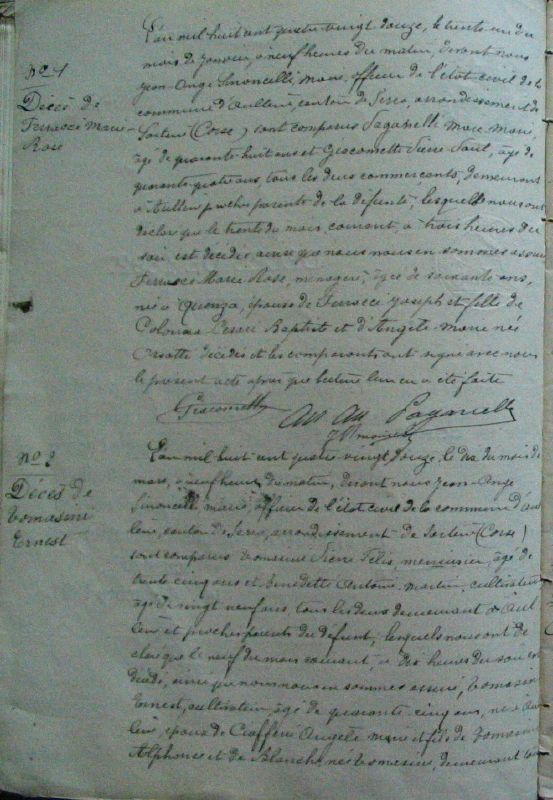 L'an mil huit cent quatre vingt douze, le trente un du
mois de janvier, à neuf heures du matin, devant nous
Jean Ange Simoncelli, maire, officier de l'état civil de la
commune d'Aullène, canton de Serra, arrondissement de
Sartène (Corse) sont comparus Paganelli Marc Marie,
âgé de quarante huit ans et Giacometti Pierre Paul, âgé de
quarante quatre ans, tous les deux commerçants, demeurant
à Aullène proches parents de la défunte, lesquels nous ont
déclaré que le trente du mois courant, à trois heures du
soir, est décédée, ainsi que nous nous en sommes assuré
Ferracci Marie Rose, ménagère, âgée de soixante ans,
née à Quenza, épouse de Ferracci Joseph et fille de
Colonna Baptiste et d'Angèle Marie née
décédés et les comparants ont signé avec nous
le présent acte après que lecture leur en a été faite
Giacometti Paganelli
nº 1
Décès de
Ferracci Marie
Rose
L'an mil huit cent quatre vingt douze, le dix du mois de
mars, à neuf heures du matin, devant nous Jean Ange
Simoncelli, maire, officier de l'état civil de la commune d'Aul
lène, canton de Serra, arrondissement de Sartène (Corse)
sont comparus Tomasini Pierre Félix, menuisier, âgé de
trente cinq ans et Benedetti Antoine Martin, cultivateur
âgé de vingt neuf ans, tous les deux demeurant à Aul
lène et proches parents du défunt, lesquels nous ont dé
claré que le neuf du mois courant, à dix heures du soir est
décédé, ainsi que nous nous en sommes assuré, Tomasini
Ernest, cultivateur, âgé de quarante cinq ans, né à Aul
lène, époux de Ciafferi Angèle Marie et fils de Tomasini
Alphonse et de Blanche née Tomasini, demeurant
nº 2
Décès de
Tomasini
Ernest